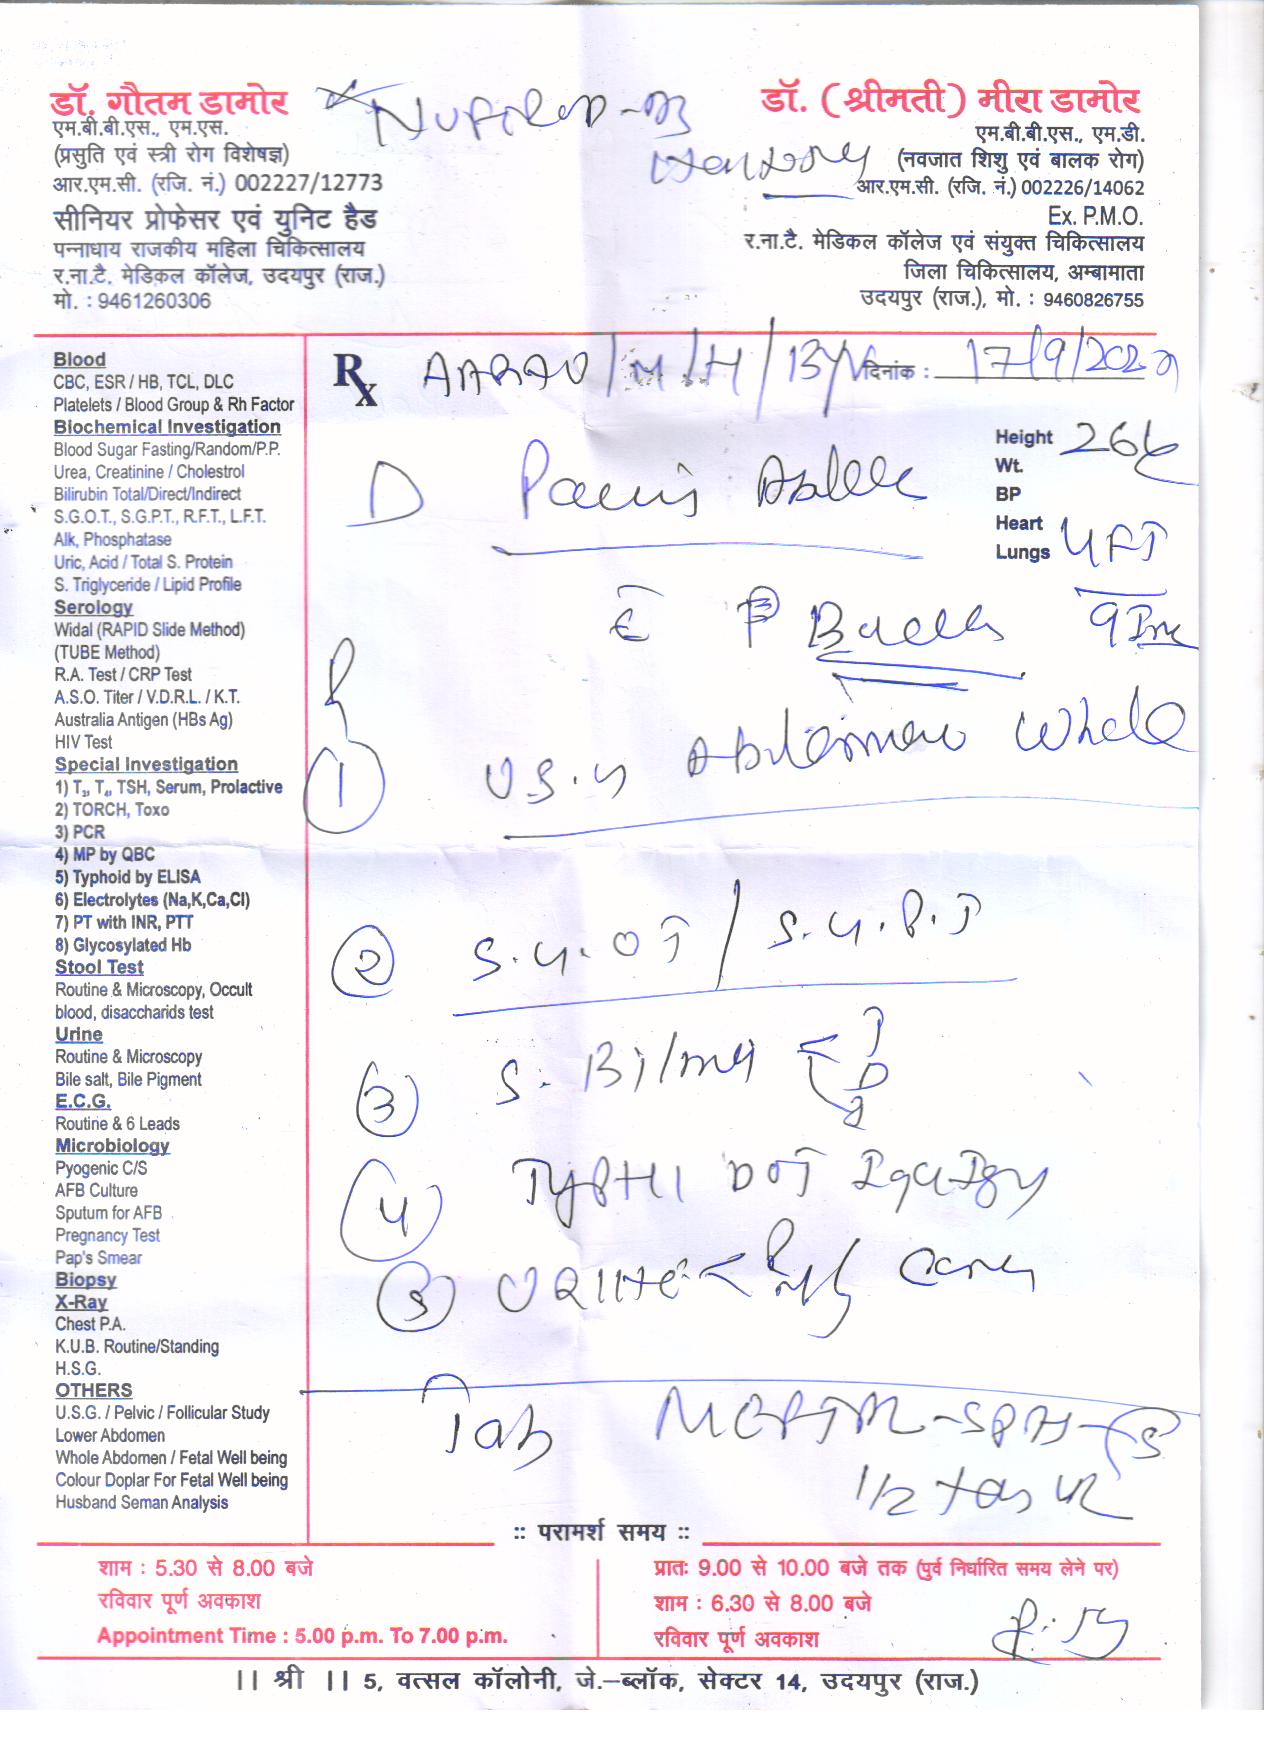 डॉ. गौतम डामोर
एम.बी.बी.एस., एम.एस.
(प्रसुति एवं स्त्री रोग विशेषज्ञ)
आर.एम.सी. (रजि. नं.) 002227/12773
सीनियर प्रोफेसर एवं युनिट हैड
पन्नाधाय राजकीय महिला चिकित्सालय
र.ना.टै. मेडिकल कॉलेज, उदयपुर (राज.)
मो. : 9461260306
डॉ. (श्रीमती) मीरा डामोर
एम.बी.बी.एस., एम.डी.
(नवजात शिशु एवं बालक रोग)
आर.एम.सी. (रजि. नं.) 002226/14062
Ex. P.M.O.
र.ना.टै. मेडिकल कॉलेज एवं संयुक्त चिकित्सालय
जिला चिकित्सालय, अम्बामाता
उदयपुर (राज.), मो. : 9460826755
Blood
CBC, ESR / HB, TCL, DLC
Platelets / Blood Group & Rh Factor
Biochemical Investigation
Blood Sugar Fasting/Random/P.P.
Urea, Creatinine / Cholestrol
Bilirubin Total/Direct/Indirect
S.G.O.T., S.G.P.T., R.F.T., L.F.T.
Alk, Phosphatase
Uric, Acid / Total S. Protein
S. Triglyceride / Lipid Profile
Serology
Widal (RAPID Slide Method)
(TUBE Method)
R.A. Test / CRP Test
A.S.O. Titer / V.D.R.L. / K.T.
Australia Antigen (HBs Ag)
HIV Test
Special Investigation
1) T₃, T₄, TSH, Serum, Prolactive
2) TORCH, Toxo
3) PCR
4) MP by QBC
5) Typhoid by ELISA
6) Electrolytes (Na,K,Ca,Cl)
7) PT with INR, PTT
8) Glycosylated Hb
Stool Test
Routine & Microscopy, Occult
blood, disaccharids test
Urine
Routine & Microscopy
Bile salt, Bile Pigment
E.C.G.
Routine & 6 Leads
Microbiology
Pyogenic C/S
AFB Culture
Sputum for AFB
Pregnancy Test
Pap's Smear
Biopsy
X-Ray
Chest P.A.
K.U.B. Routine/Standing
H.S.G.
OTHERS
U.S.G. / Pelvic / Follicular Study
Lower Abdomen
Whole Abdomen / Fetal Well being
Colour Doplar For Fetal Well being
Husband Seman Analysis
Rx AARAV /M/H/13y दिनांक : 17/9/202
Height
Wt.
BP
Heart
Lungs
D
1 U.S.G Abdomen Whole
2 S.G.OT / S.G.P.T
3 S. Bil T D I
4 TYPHI DOT IgG IgM
5 URINE
Tab
1/2 tab
:: परामर्श समय ::
शाम : 5.30 से 8.00 बजे
रविवार पूर्ण अवकाश
Appointment Time : 5.00 p.m. To 7.00 p.m.
प्रातः 9.00 से 10.00 बजे तक (पुर्व निर्धारित समय लेने पर)
शाम : 6.30 से 8.00 बजे
रविवार पूर्ण अवकाश
|| श्री || 5, वत्सल कॉलोनी, जे.-ब्लॉक, सेक्टर 14, उदयपुर (राज.)